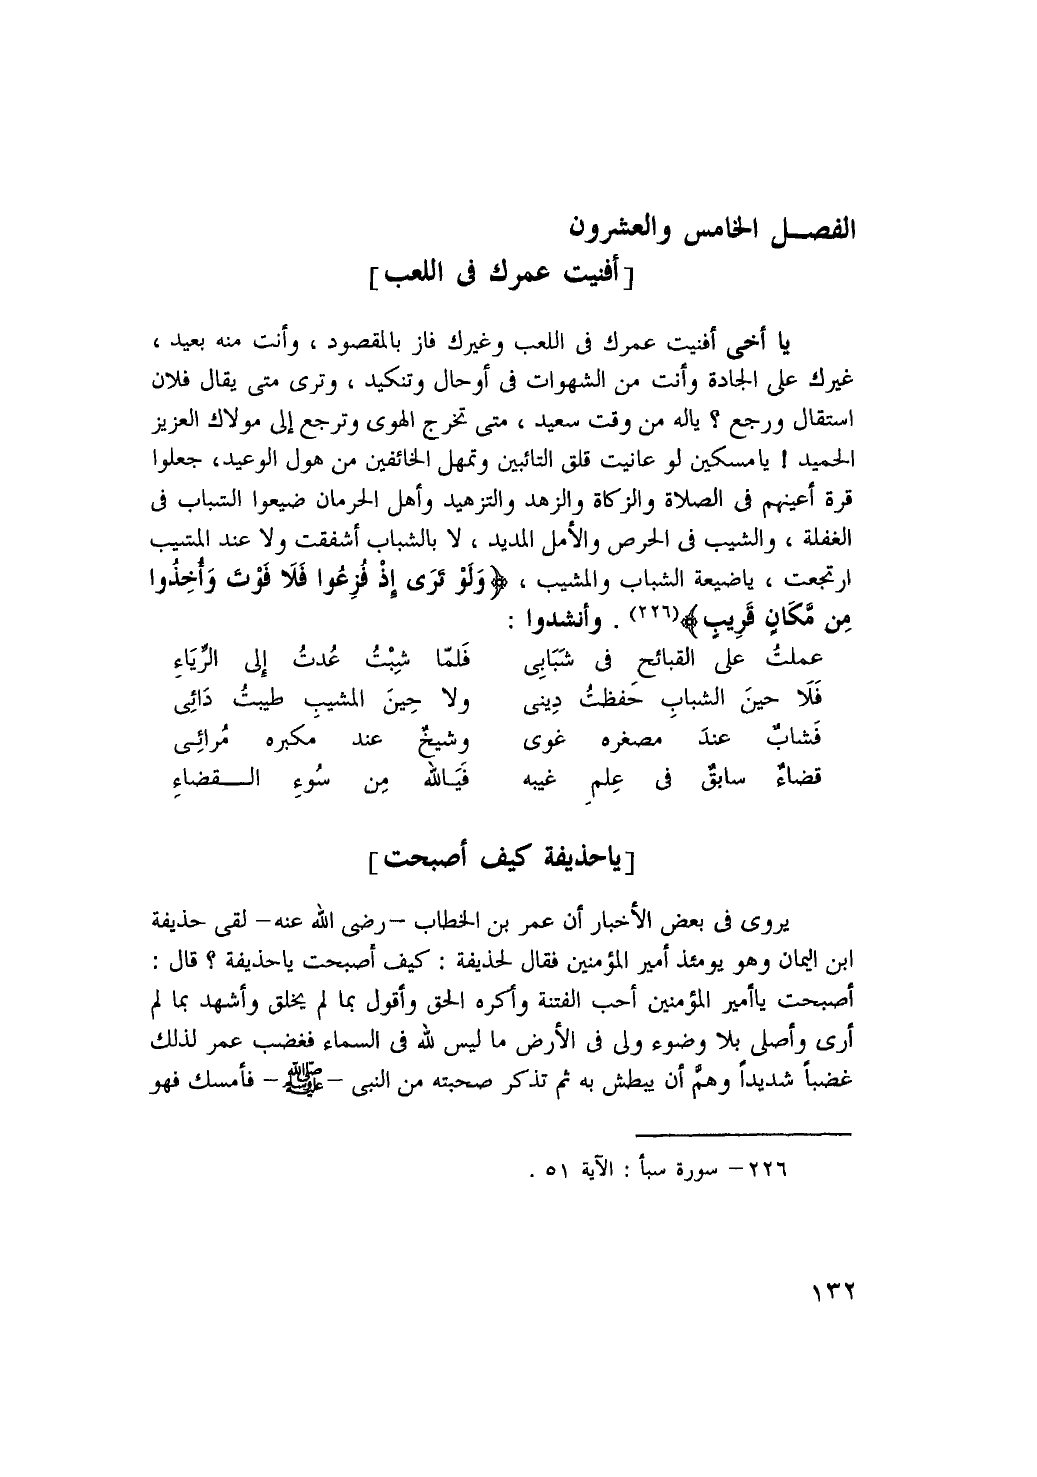 الفصـــل الخامس والعشرون
[أفنيت عمرك فى اللعب]
يا أخى أفنيت عمرك فى اللعب وغيرك فاز بالمقصود ، وأنت منه بعيد ،
غيرك على الجادة وأنت من الشهوات فى أوحال وتنكيد ، وترى متى يقال فلان
استقال ورجع ؟ ياله من وقت سعيد ، متى تخرج الهوى وترجع إلى مولاك العزيز
الحميد ! يامسكين لو عانيت قلق التائبين وتمهل الخائفين من هول الوعيد، جعلوا
قرة أعينهم فى الصلاة والزكاة والزهد والتزهيد وأهل الحرمان ضيعوا الشباب فى
الغفلة ، والشيب فى الحرص والأمل المديد ، لا بالشباب أشفقت ولا عند المشيب
ارتجعت ، ياضيعة الشباب والمشيب ، ﴿وَلَوْ تَرَى إِذْ فُزِعُوا فَلَا فَوْتَ وَأُخِذُوا
مِن مَّكَانٍ قَرِيبٍ﴾(٢٢٦) . وأنشدوا :
عملتُ على القبائحِ فى شَبَابِى فَلمّا شِبْتُ عُدتُ إلى الرِّيَاءِ
فَلَا حينَ الشبابِ حَفظتُ دِينى ولا حِينَ المشيبِ طيبتُ دَائِى
فَشابٌ عندَ مصغره غوى وشيخٌ عند مكبره مُرائِـى
قضاءٌ سابقٌ فى عِلمِ غيبه فَيَـالله مِن سُوءِ الـــقضاءِ
[ياحذيفة كيف أصبحت]
يروى فى بعض الأخبار أن عمر بن الخطاب –رضى الله عنه– لقى حذيفة
ابن اليمان وهو يومئذ أمير المؤمنين فقال لحذيفة : كيف أصبحت ياحذيفة ؟ قال :
أصبحت ياأمير المؤمنين أحب الفتنة وأكره الحق وأقول بما لم يخلق وأشهد بما لم
أرى وأصلى بلا وضوء ولى فى الأرض ما ليس لله فى السماء فغضب عمر لذلك
غضباً شديداً وهمَّ أن يبطش به ثم تذكر صحبته من النبى –ﷺ– فأمسك فهو
٢٢٦– سورة سبأ : الآية ٥١ .
١٣٢